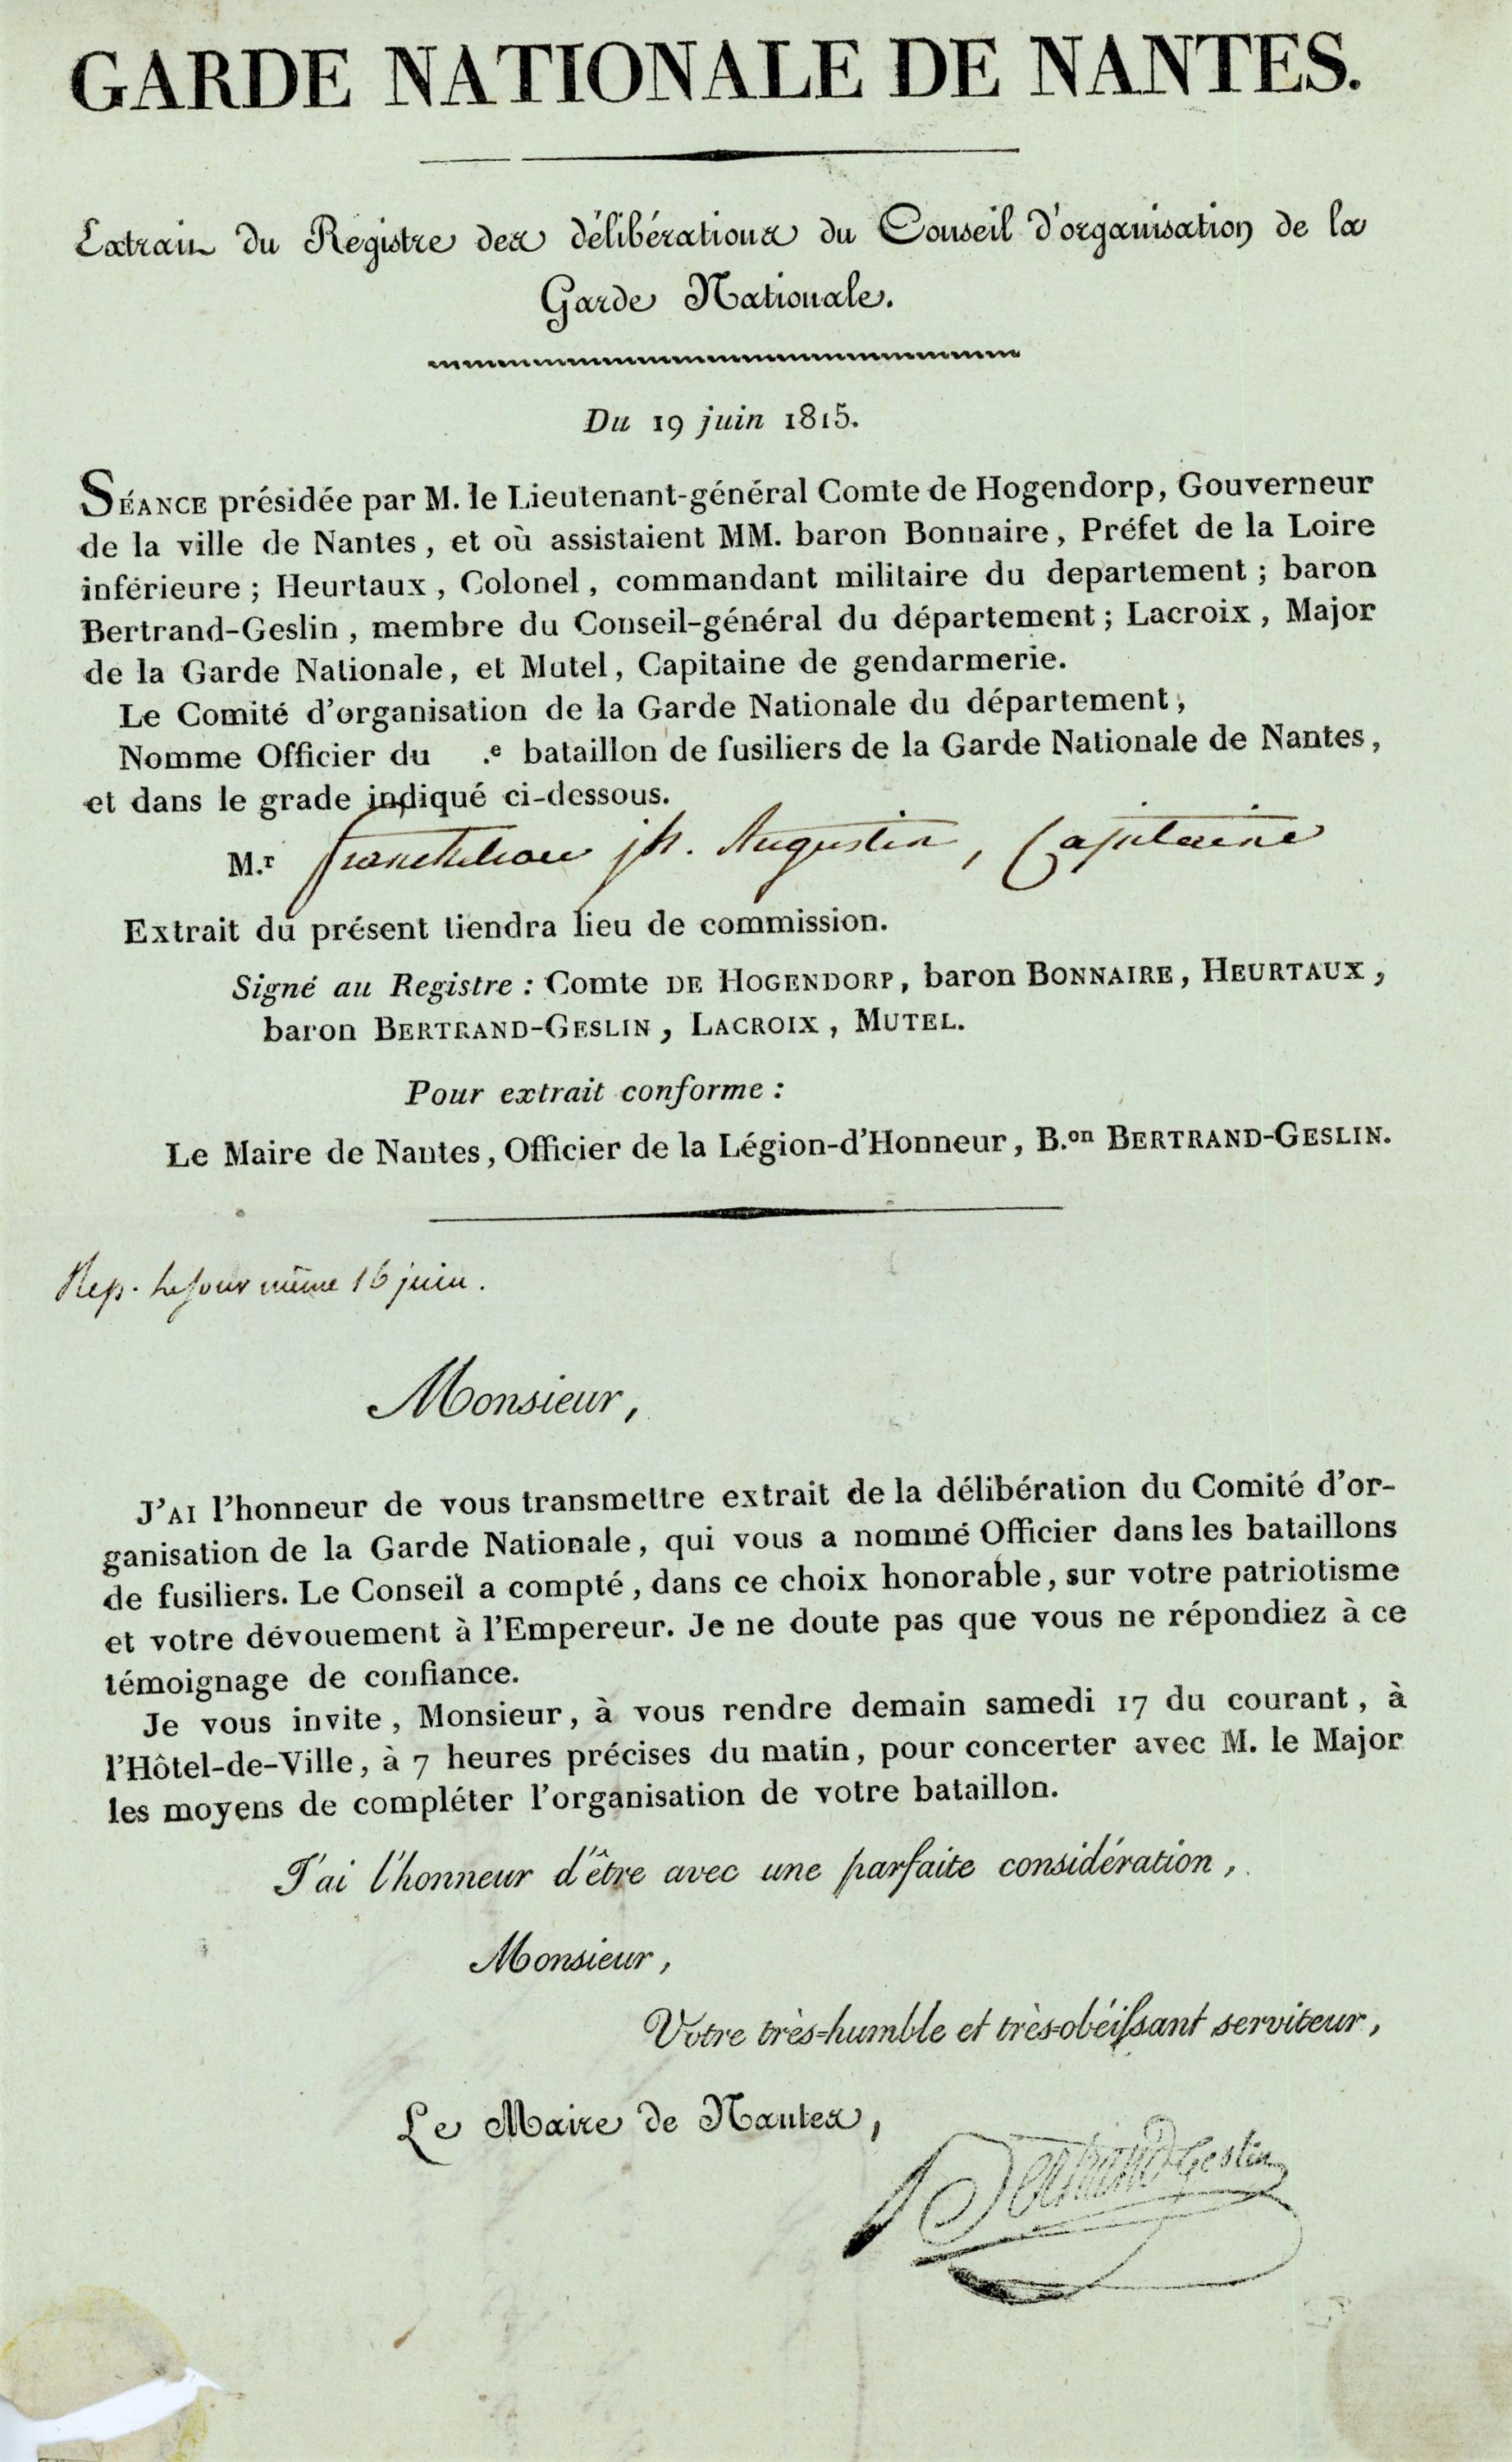 GARDE NATIONALE DE NANTES.
Extrait du Registre des délibérations du Conseil d'organisation de la
Garde Nationale.
Du 19 juin 1815.
SÉANCE présidée par M. le Lieutenant-général Comte de Hogendorp, Gouverneur
de la ville de Nantes, et où assistaient MM. baron Bonnaire, Préfet de la Loire
inférieure; Heurtaux, Colonel, commandant militaire du departement; baron
Bertrand-Geslin, membre du Conseil-général du département; Lacroix, Major
de la Garde Nationale, et Mutel, Capitaine de gendarmerie.
Le Comité d'organisation de la Garde Nationale du département,
Nomme Officier du .e bataillon de fusiliers de la Garde Nationale de Nantes,
et dans le grade indiqué ci-dessous.
M.r jh. Augustin, Capitaine
Extrait du présent tiendra lieu de commission.
Signé au Registre : Comte DE HOGENDORP, baron BONNAIRE, HEURTAUX,
baron BERTRAND-GESLIN, LACROIX, MUTEL.
Pour extrait conforme :
Le Maire de Nantes, Officier de la Légion-d'Honneur, B.on BERTRAND-GESLIN.
Rep. le jour même 16 juin.
Monsieur,
J'AI l'honneur de vous transmettre extrait de la délibération du Comité d'or-
ganisation de la Garde Nationale, qui vous a nommé Officier dans les bataillons
de fusiliers. Le Conseil a compté, dans ce choix honorable, sur votre patriotisme
et votre dévouement à l'Empereur. Je ne doute pas que vous ne répondiez à ce
témoignage de confiance.
Je vous invite, Monsieur, à vous rendre demain samedi 17 du courant, à
l'Hôtel-de-Ville, à 7 heures précises du matin, pour concerter avec M. le Major
les moyens de compléter l'organisation de votre bataillon.
J'ai l'honneur d'être avec une parfaite considération,
Monsieur,
Votre très-humble et très-obéissant serviteur,
Le Maire de Nantes,
Bertrand Geslin